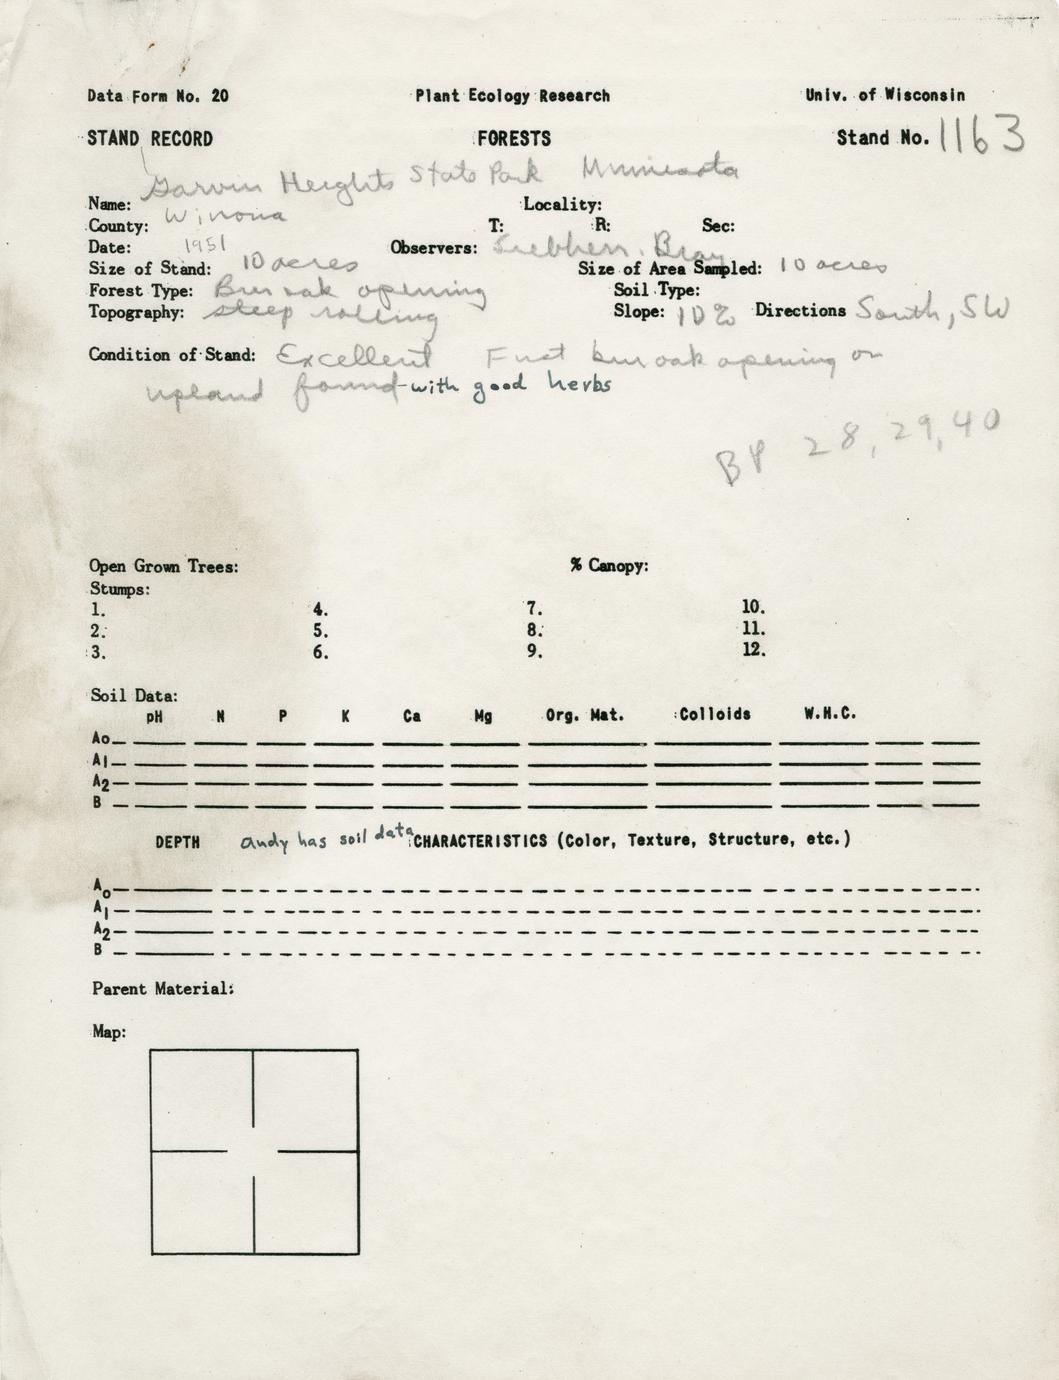 Data Form No. 20 Plant Ecology Research Univ. of Wisconsin
STAND RECORD FORESTS Stand No. 1163
Garvin Heights State Park Minnesota
Name: Locality:
County: Winona T: R: Sec:
Date: 1951 Observers: Bray
Size of Stand: 10 acres Size of Area Sampled: 10 acres
Forest Type: Bur oak opening Soil Type:
Topography: steep rolling Slope: 10% Directions South, SW
Condition of Stand: Excellent First bur oak opening on
upland found - with good herbs
BP 28, 29, 40
Open Grown Trees: % Canopy:
Stumps:
1. 4. 7. 10.
2. 5. 8. 11.
3. 6. 9. 12.
Soil Data:
pH N P K Ca Mg Org. Mat. Colloids W.H.C.
Ao
A1
A2
B
DEPTH andy has soil data CHARACTERISTICS (Color, Texture, Structure, etc.)
Ao
A1
A2
B
Parent Material:
Map: